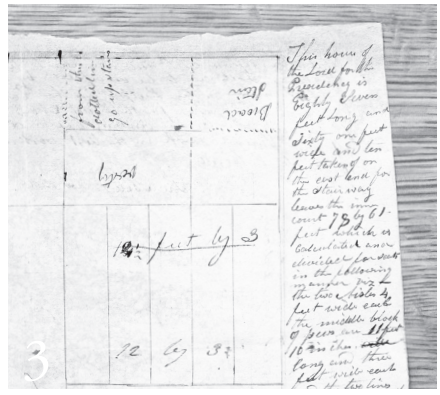 This house of
the Lord for the
Presidency is
Eighty Seven
feet long and
Sixty one feet
wide and ten
feet taken off
the east end for
the stairway
leaves the inner
court 78 by 61
feet which is
calculated and
divided for seats
in the following
manner viz
the two Isles 4
feet wide each
the middle block
of pews are 11 feet
10 inches
long and three
feet wide each
and the two lines
Broad
Stair
vestry
feet by 3
12 by 3½
3